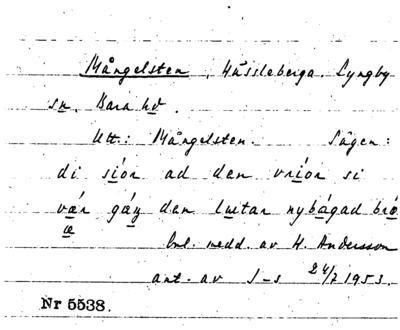 Mångelsten, Hässleberga. Lyngby
sn, Bara hd.
Utt.: Mångelsten. Sägen:
di siór ad den vriór si
vær gáŋ den lwtar nybágad brö
æ
Enl. medd. av H. Andersson
ant. av J-s 24/7 1953.
Nr 5538.